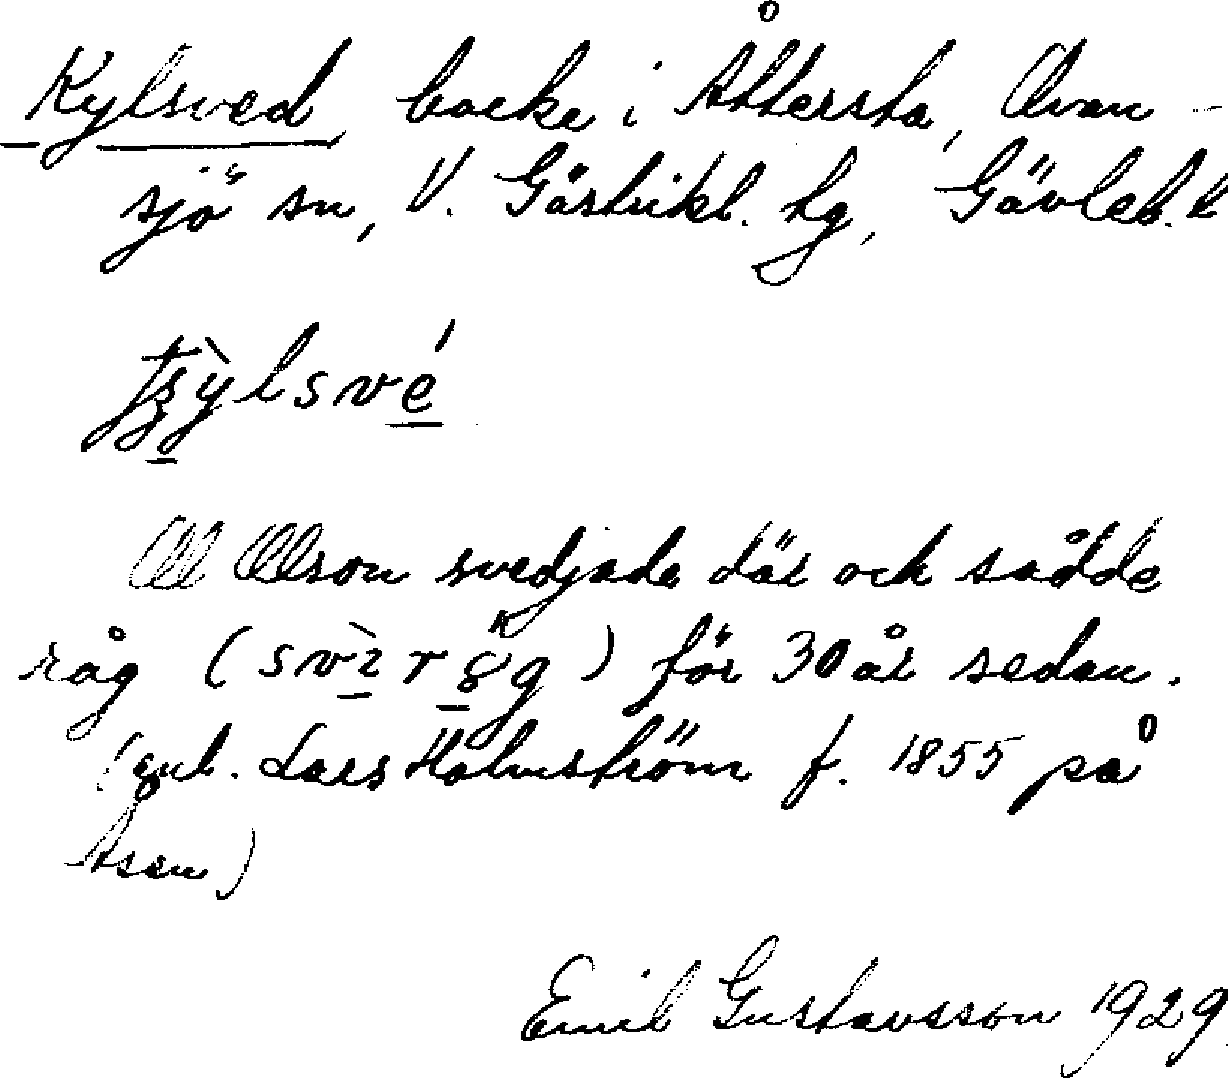 Kylsved, backe i Åttersta, Ovan-
sjö sn, V. Gästrikl. hg, Gävleb. l
tʂỳlsvé
Oll Olson svedjade där och sådde
råg (svìråg) för 30 år sedan.
(enl. Lars Holmström f. 1855 på
Åsen)
Emil Gustavsson 1929.